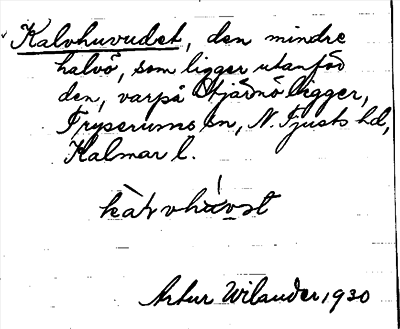 Kalvhuvudet, den mindre
halvö, som ligger utanför
den, varpå Stjärnö ligger,
Tryserums sn, N. Tjusts hd,
Kalmar l.
Artur Wilander, 1930